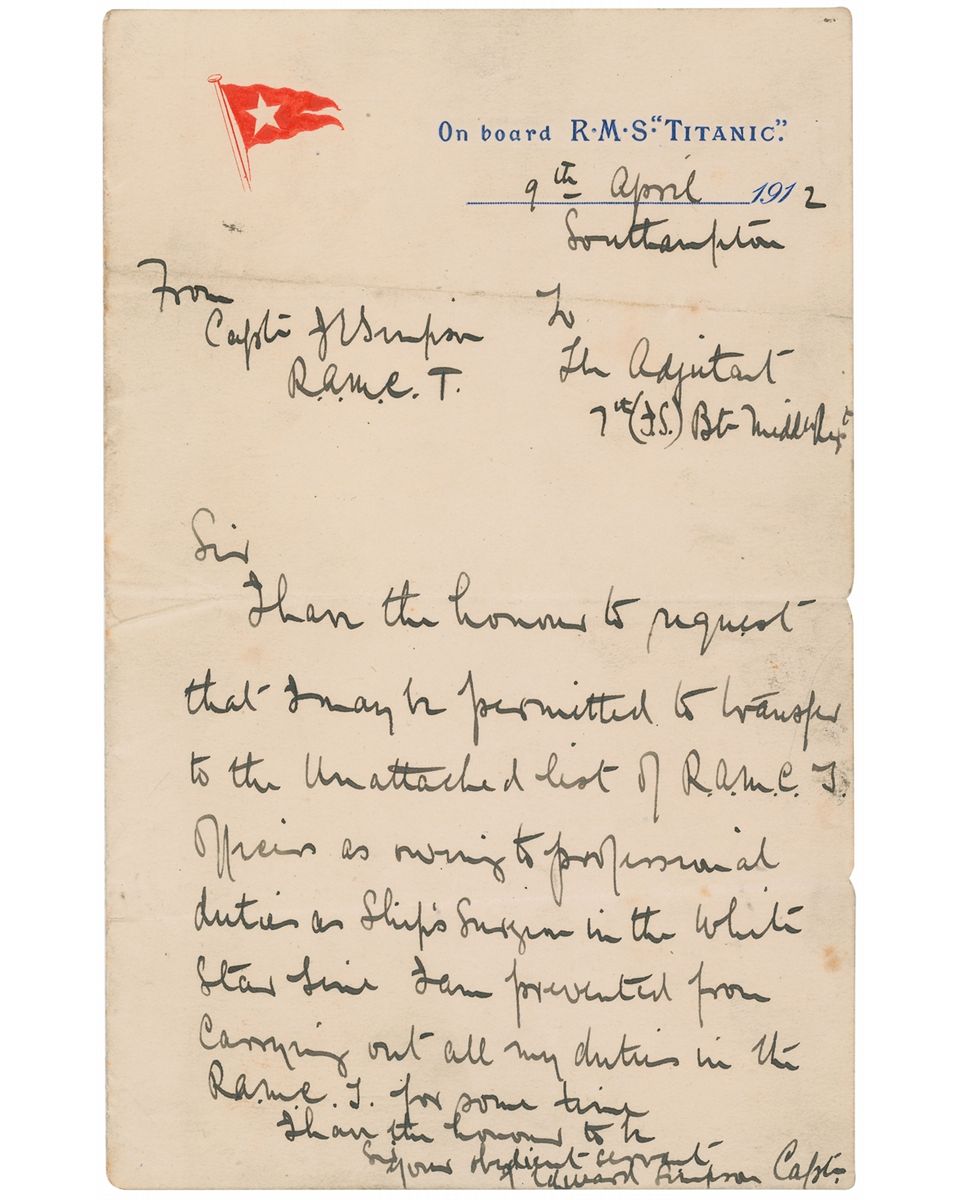 On board R·M·S· "TITANIC".
9th April 1912
Southampton
From
Captn J E Simpson
R.A.M.C. T.
To
The Adjutant
7th (F.S.) Btn Middx Regt
Sir
I have the honour to request
that I may be permitted to transfer
to the Unattached list of R.A.M.C. T.
Officers as owing to professional
duties as Ship's Surgeon in the White
Star Line I am prevented from
Carrying out all my duties in the
R.A.M.C. T. for some time
I have the honour to be
Sir your obedient servant
J Edward Simpson Captn